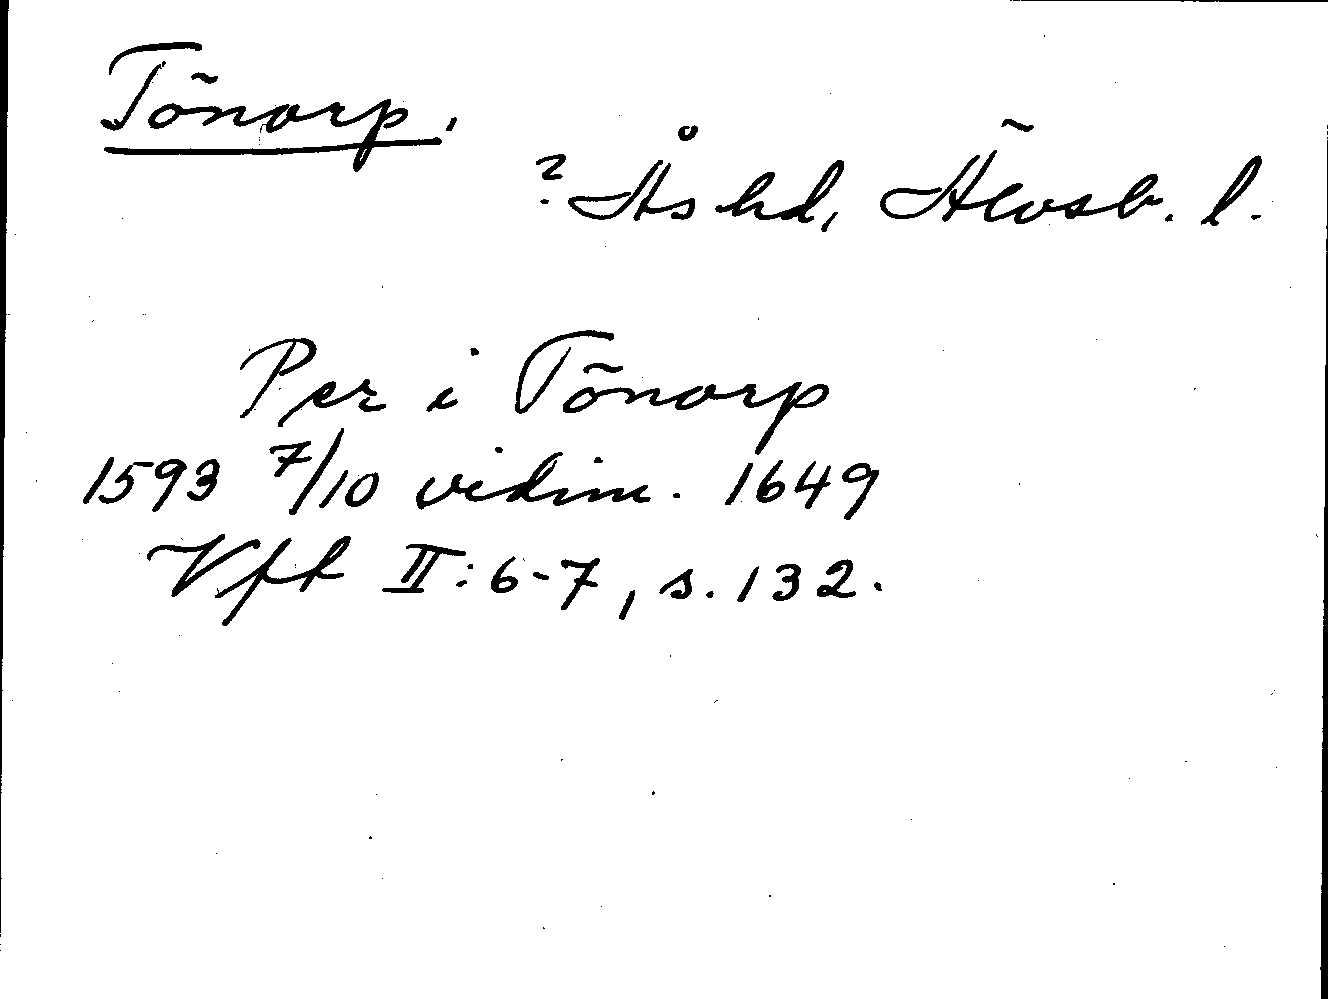 Tönorp.
? Ås hd, Älvsb. l.
Per i Tönorp
1593 7/10 vidim. 1649
Vft II: 6-7, s. 132.